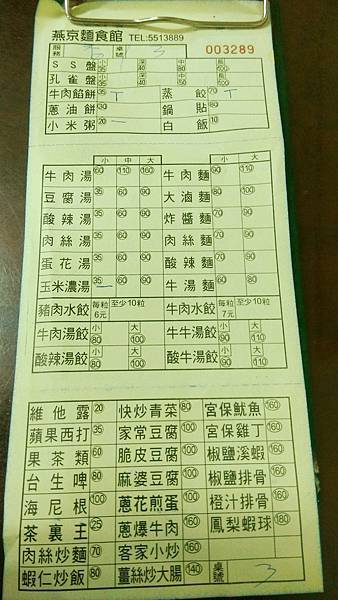 燕京麵食館 TEL:5513889
服務 桌號 3 003289
SS盤 小35 深40 中50 長100
孔雀盤 小35 深40 中80 長100
牛肉餡餅 35 T 蒸餃 70 T
蔥油餅 30 鍋貼 80
小米粥 20 一 白飯 10
小 中 大 小 大
牛肉湯 60 110 160 牛肉麵 90 110
豆腐湯 35 60 90 大滷麵 80 100
酸辣湯 35 60 90 炸醬麵 70 90
肉絲湯 35 60 90 肉絲麵 70 90
蛋花湯 35 60 90 酸辣麵 70 90
玉米濃湯 35 一 60 90 牛湯麵 60 80
豬肉水餃 每粒6元 至少10粒 牛肉水餃 每粒7元 至少10粒
牛肉湯餃 小80 大100 牛牛湯餃 小90 大110
酸辣湯餃 小80 大100 酸牛湯餃 小90 大110
維他露 20 快炒青菜 80 宮保魷魚 160
蘋果西打 35 家常豆腐 100 宮保雞丁 160
果茶類 60 脆皮豆腐 100 椒鹽溪蝦 160
台生啤 80 麻婆豆腐 100 椒鹽排骨 160
海尼根 100 蔥花煎蛋 100 橙汁排骨 160
茶裏王 25 蔥爆牛肉 160 鳳梨蝦球 180
肉絲炒麵 70 客家小炒 160
蝦仁炒飯 80 薑絲炒大腸 140 桌號 3